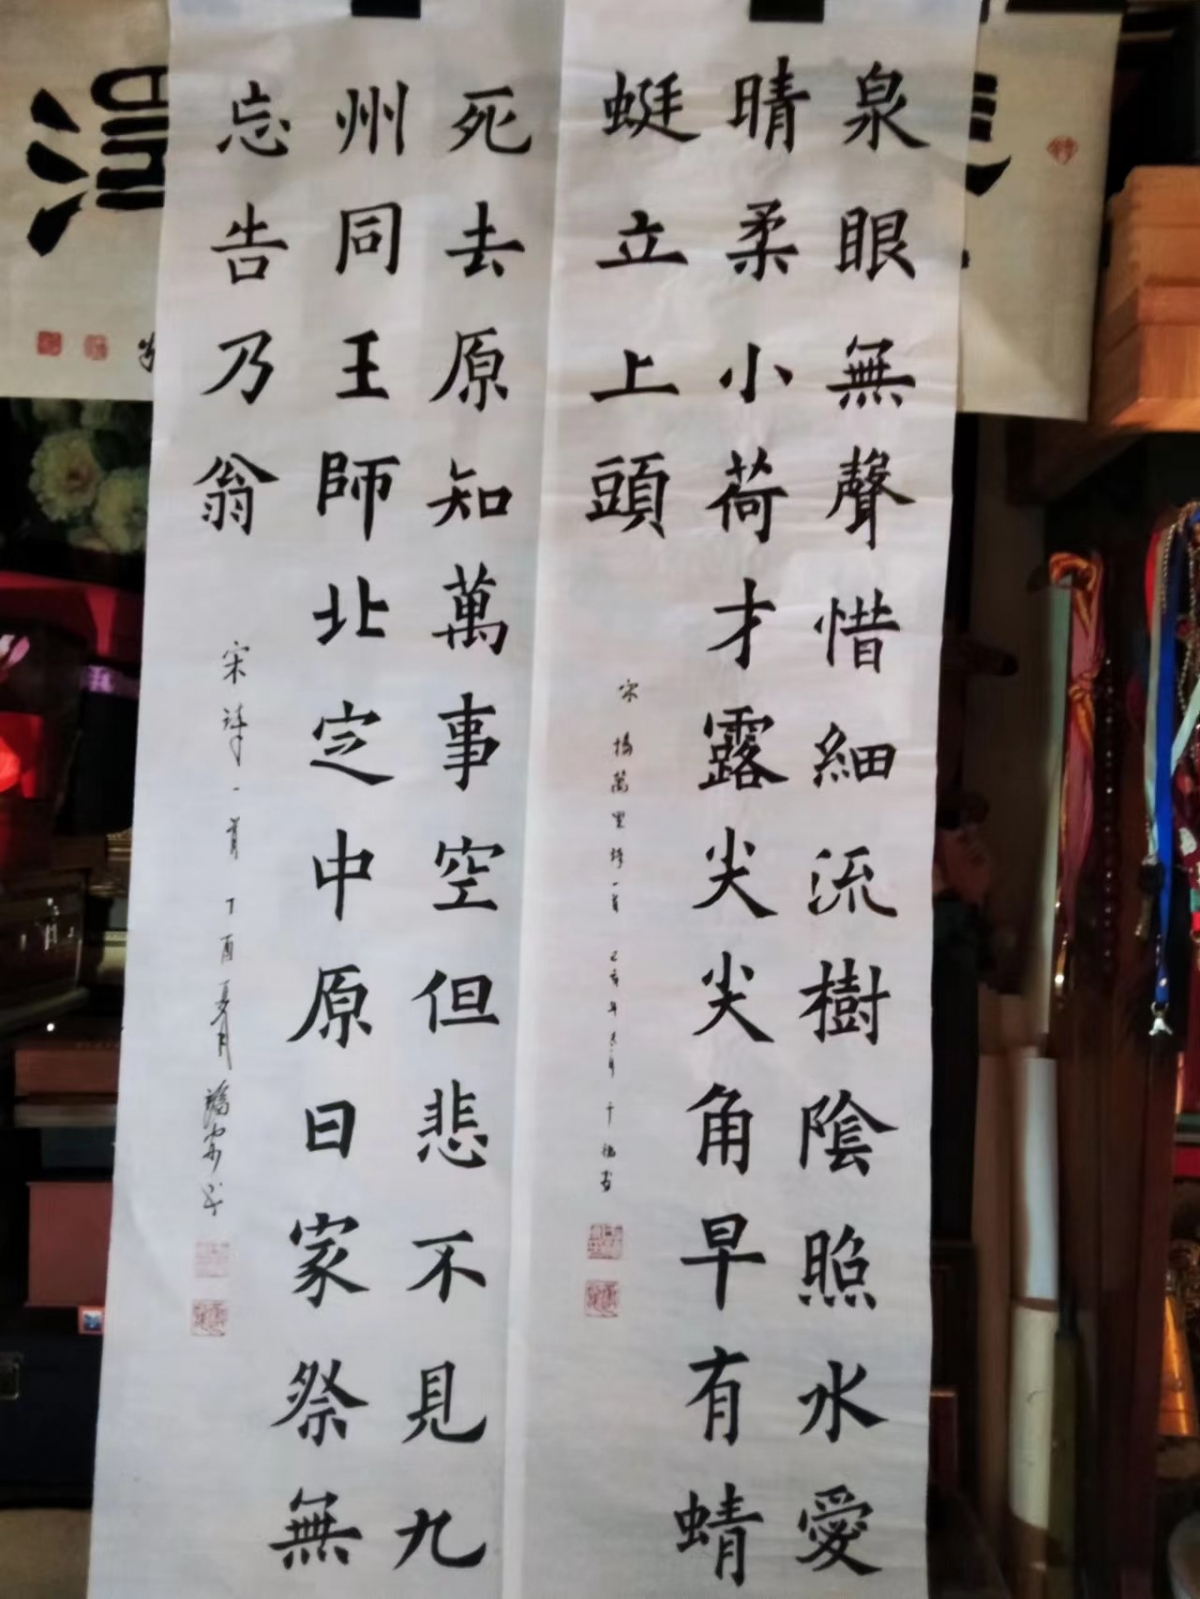 泉眼無聲惜細流樹陰照水愛
晴柔小荷才露尖尖角早有蜻
蜓立上頭
宋 楊萬里詩一首 己亥年
死去原知萬事空但悲不見九
州同王師北定中原日家祭無
忘告乃翁
宋詩一首 丁酉夏月